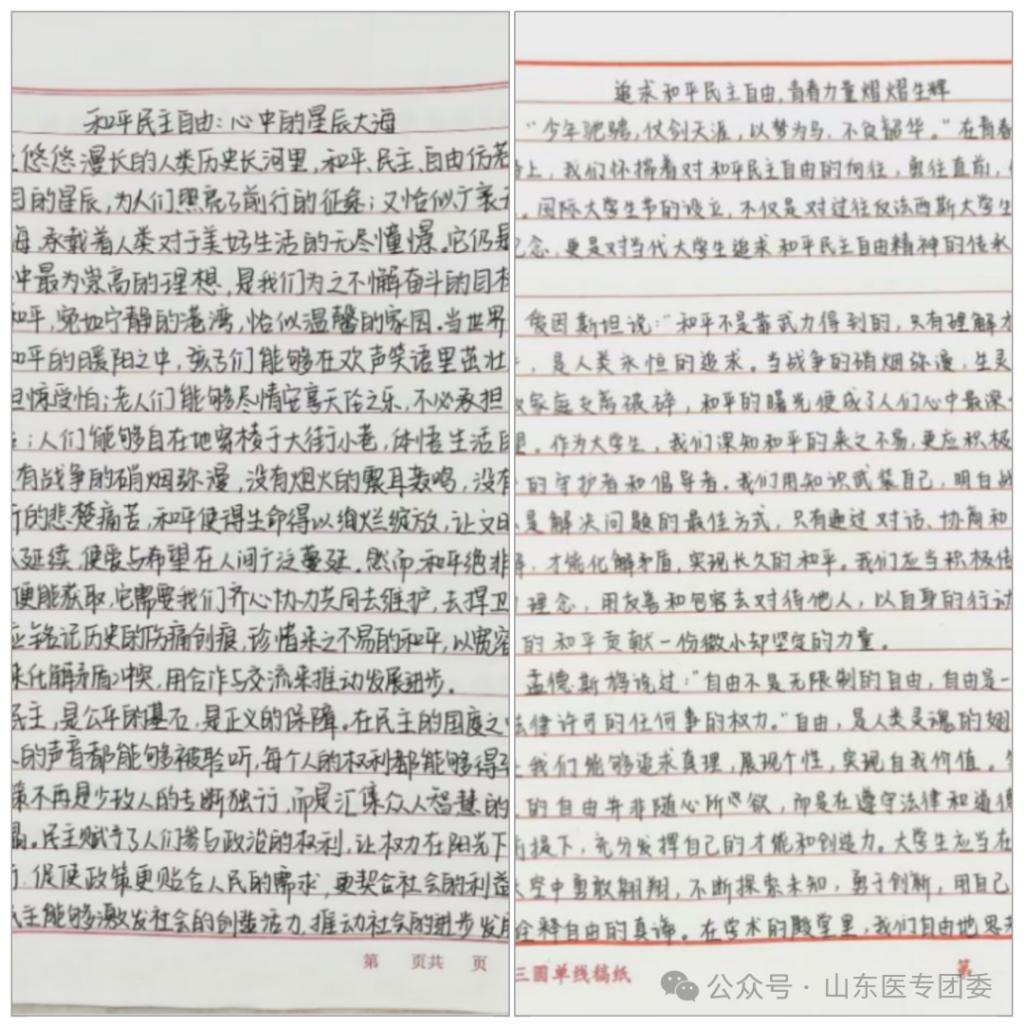 和平民主自由:心中的星辰大海
悠悠漫长的人类历史长河里,和平、民主、自由仿若
目的星辰,为人们照亮了前行的征途;又恰似广袤无
海,承载着人类对于美好生活的无尽憧憬。它仍是
中最为崇高的理想,是我们为之不懈奋斗的目标
和平,宛如宁静的港湾,恰似温馨的家园。当世界
和平的暖阳之中,孩子们能够在欢声笑语里茁壮
担惊受怕;老人们能够尽情安享天伦之乐,不必承担
;人们能够自在地穿梭于大街小巷,体悟生活的
有战争的硝烟弥漫,没有炮火的震耳轰鸣,没有
的悲楚痛苦,和平使得生命得以绚烂绽放,让文明
延续,使爱与希望在人间广泛蔓延。然而,和平绝非
便能获取,它需要我们齐心协力共同去维护,去捍卫
应铭记历史的伤痛创痕,珍惜来之不易的和平,以宽容
来化解矛盾冲突,用合作与交流来推动发展进步。
民主,是公平的基石,是正义的保障。在民主的国度之中
的声音都能够被聆听,每个人的权利都能够得到
策不再是少数人的专断独行,而是汇集众人智慧的
晶。民主赋予了人们参与政治的权利,让权力在阳光下
,促使政策更贴合人民的需求,更契合社会的利益
民主能够激发社会的创造活力,推动社会的进步发展
第 页共 页
追求和平民主自由,青春力量熠熠生辉
"少年驰骋,仗剑天涯,以梦为马,不负韶华。"在青春
上,我们怀揣着对和平民主自由的向往,勇往直前,
。国际大学生节的设立,不仅是对过往反法西斯大学生
纪念,更是对当代大学生追求和平民主自由精神的传承
爱因斯坦说:"和平不是靠武力得到的,只有理解才
,是人类永恒的追求。当战争的硝烟弥漫,生灵
家庭支离破碎,和平的曙光便成了人们心中最深
望。作为大学生,我们深知和平的来之不易,更应积极
的守护者和倡导者。我们用知识武装自己,明白战
是解决问题的最佳方式,只有通过对话、协商和
,才能化解矛盾,实现长久的和平。我们应当积极传
理念,用友善和包容去对待他人,以自身的行动
的和平贡献一份微小却坚定的力量。
孟德斯鸠说过:"自由不是无限制的自由,自由是一
法律许可的任何事的权力。"自由,是人类灵魂的翅
让我们能够追求真理,展现个性,实现自我价值。
的自由并非随心所欲,而是在遵守法律和道德
前提下,充分发挥自己的才能和创造力。大学生应当在
天空中勇敢翱翔,不断探索未知,勇于创新,用自己
诠释自由的真谛。在学术的殿堂里,我们自由地思考
三圆单线稿纸 第
公众号·山东医专团委